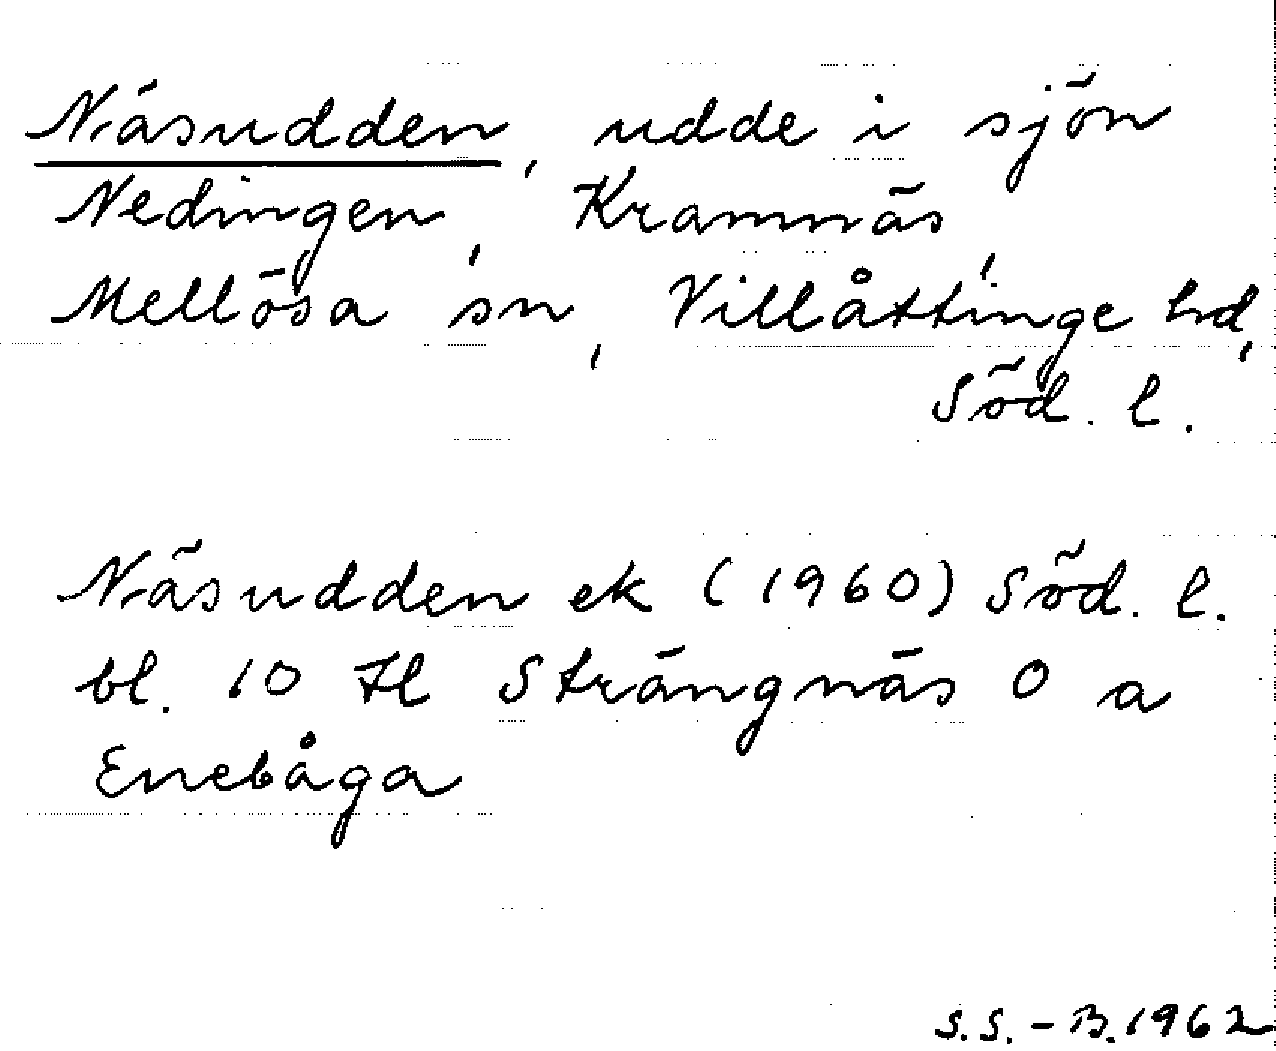 Näsudden, udde i sjön
Nedingen, Kramnäs,
Mellösa sn, Villåttinge hd,
Söd. l.
Näsudden ek (1960) Söd. l.
bl. 10 Fl Strängnäs O a
Enebåga
S.S.-B. 1962